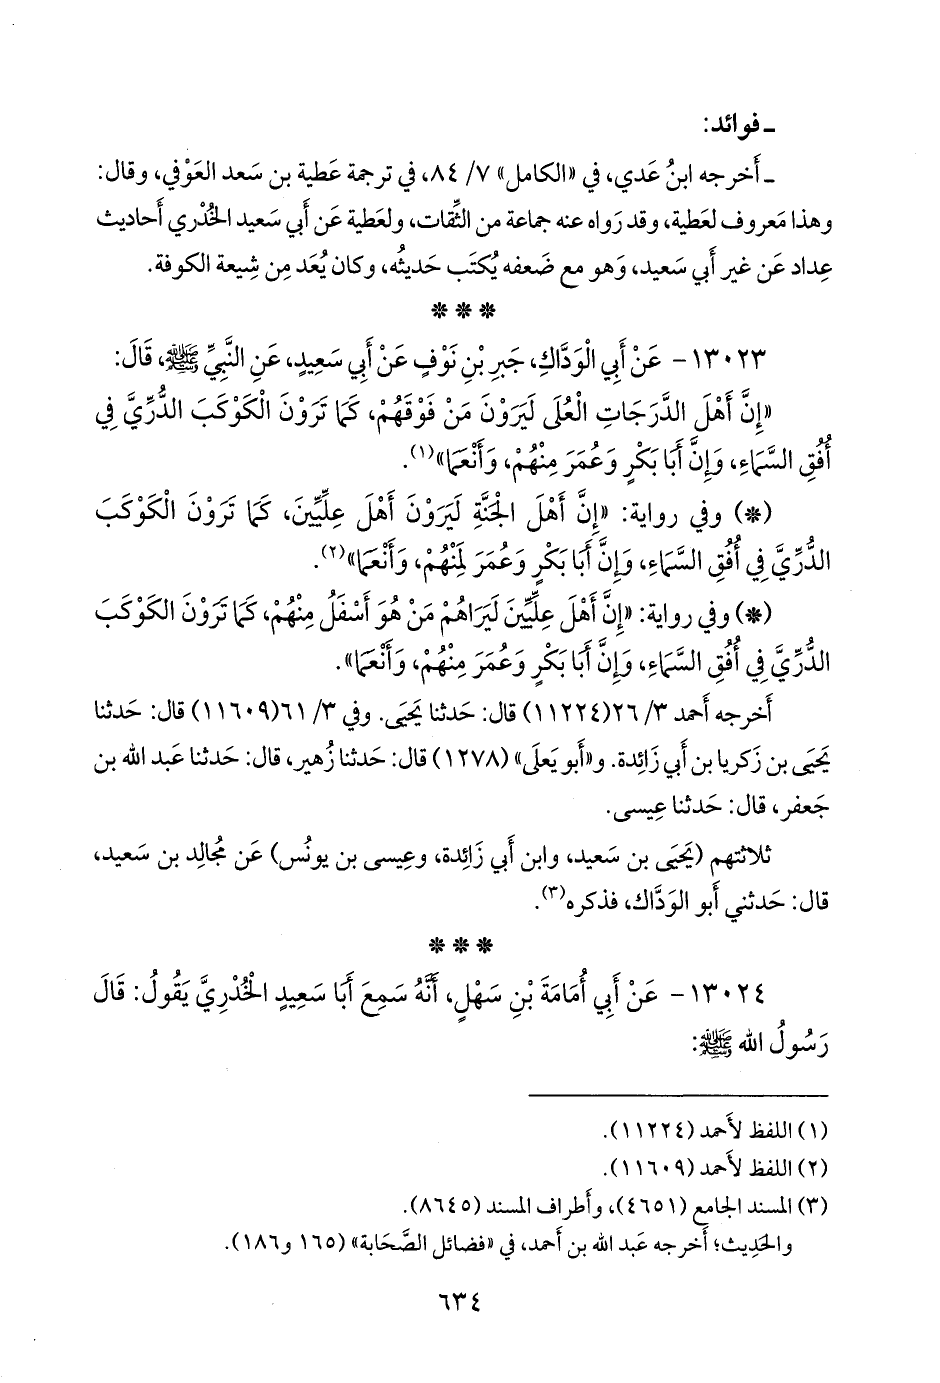 ـ فوائد:
ـ أَخرجه ابنُ عَدي، في «الكامل» ٧/ ٨٤، في ترجمة عَطية بن سَعد العَوْفي، وقال:
وهذا مَعروف لعَطية، وقد رَواه عنه جماعة من الثِّقات، ولعَطية عَن أَبي سَعيد الخُدْري أَحاديث
عِداد عَن غير أَبي سَعيد، وَهو مع ضَعفه يُكتَب حَديثُه، وكان يُعَد مِن شِيعة الكوفة.
* * *
١٣٠٢٣- عَنْ أَبِي الْوَدَّاكِ، جَبرِ بْنِ نَوْفٍ عَنْ أَبِي سَعِيدٍ، عَنِ النَّبِيِّ ﷺ، قَالَ:
«إِنَّ أَهْلَ الدَّرَجَاتِ الْعُلَى لَيَرَوْنَ مَنْ فَوْقَهُمْ، كَمَا تَرَوْنَ الْكَوْكَبَ الدُّرِّيَّ فِي
أُفُقِ السَّمَاءِ، وَإِنَّ أَبَا بَكْرٍ وَعُمَرَ مِنْهُمْ، وَأَنْعَمَا»(١).
(*) وفي رواية: «إِنَّ أَهْلَ الْجَنَّةِ لَيَرَوْنَ أَهْلَ عِلِّيِّينَ، كَمَا تَرَوْنَ الْكَوْكَبَ
الدُّرِّيَّ فِي أُفُقِ السَّمَاءِ، وَإِنَّ أَبَا بَكْرٍ وَعُمَرَ لَمِنْهُمْ، وَأَنْعَمَا»(٢).
(*) وفي رواية: «إِنَّ أَهْلَ عِلِّيِّينَ لَيَرَاهُمْ مَنْ هُوَ أَسْفَلُ مِنْهُمْ، كَمَا تَرَوْنَ الكَوْكَبَ
الدُّرِّيَّ فِي أُفُقِ السَّمَاءِ، وَإِنَّ أَبَا بَكْرٍ وَعُمَرَ مِنْهُمْ، وَأَنْعَمَا».
أَخرجه أَحمد ٣/ ٢٦(١١٢٢٤) قال: حَدثنا يَحيَى. وفي ٣/ ٦١(١١٦٠٩) قال: حَدثنا
يَحيَى بن زَكريا بن أَبي زَائِدة. و«أَبو يَعلَى» (١٢٧٨) قال: حَدثنا زُهير، قال: حَدثنا عَبد الله بن
جَعفر، قال: حَدثنا عِيسى.
ثلاثتهم (يَحيَى بن سَعيد، وابن أَبي زَائِدة، وعِيسى بن يونُس) عَن مُجالِد بن سَعيد،
قال: حَدثني أَبو الوَدَّاك، فذكره(٣).
* * *
١٣٠٢٤- عَنْ أَبِي أُمَامَةَ بْنِ سَهْلٍ، أَنَّهُ سَمِعَ أَبَا سَعِيدٍ الْخُدْرِيَّ يَقُولُ: قَالَ
رَسُولُ الله ﷺ:
(١) اللفظ لأَحمد (١١٢٢٤).
(٢) اللفظ لأَحمد (١١٦٠٩).
(٣) المسند الجامع (٤٦٥١)، وأَطراف المسند (٨٦٤٥).
والحَدِيث؛ أَخرجه عَبد الله بن أَحمد، في «فضائل الصَّحَابة» (١٦٥ و١٨٦).
٦٣٤